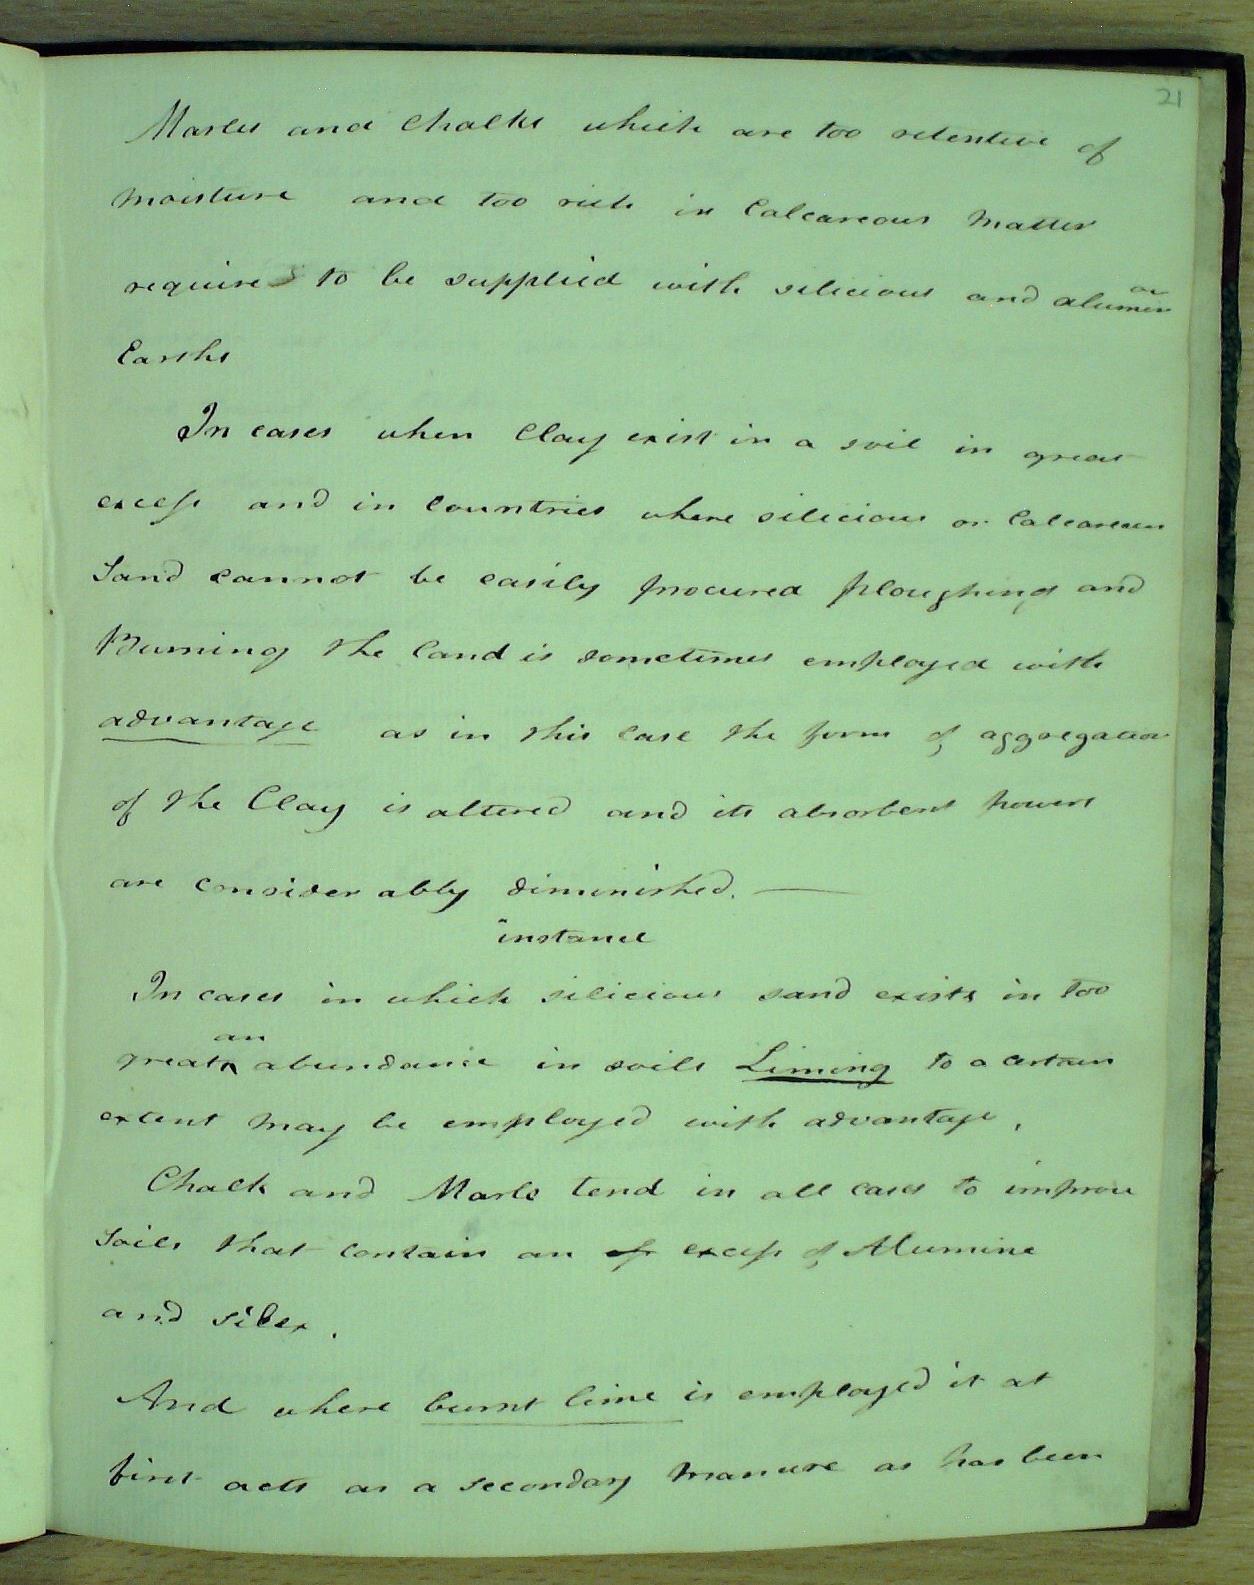 21
Marles and Chalks which are too retentive of
moisture and too rich in Calcareous Matter
require to be supplied with silicious and alumin
Earths
In cases when Clay exist in a soil in great
excess and in Countries where silicious or Calcareous
Sand cannot be easily procured ploughing and
Burning the land is sometimes employed with
advantage as in this case the form of aggregation
of the Clay is altered and its absorbent powers
are considerably diminished. —
instance
In cases in which silicious sand exists in too
an
great abundance in soils Liming to a certain
extent may be employed with advantage.
Chalk and Marle tend in all cases to improve
Soils that contain an of excess of Alumine
and silex.
And where burnt lime is employed it at
first acts as a secondary Manure as has been